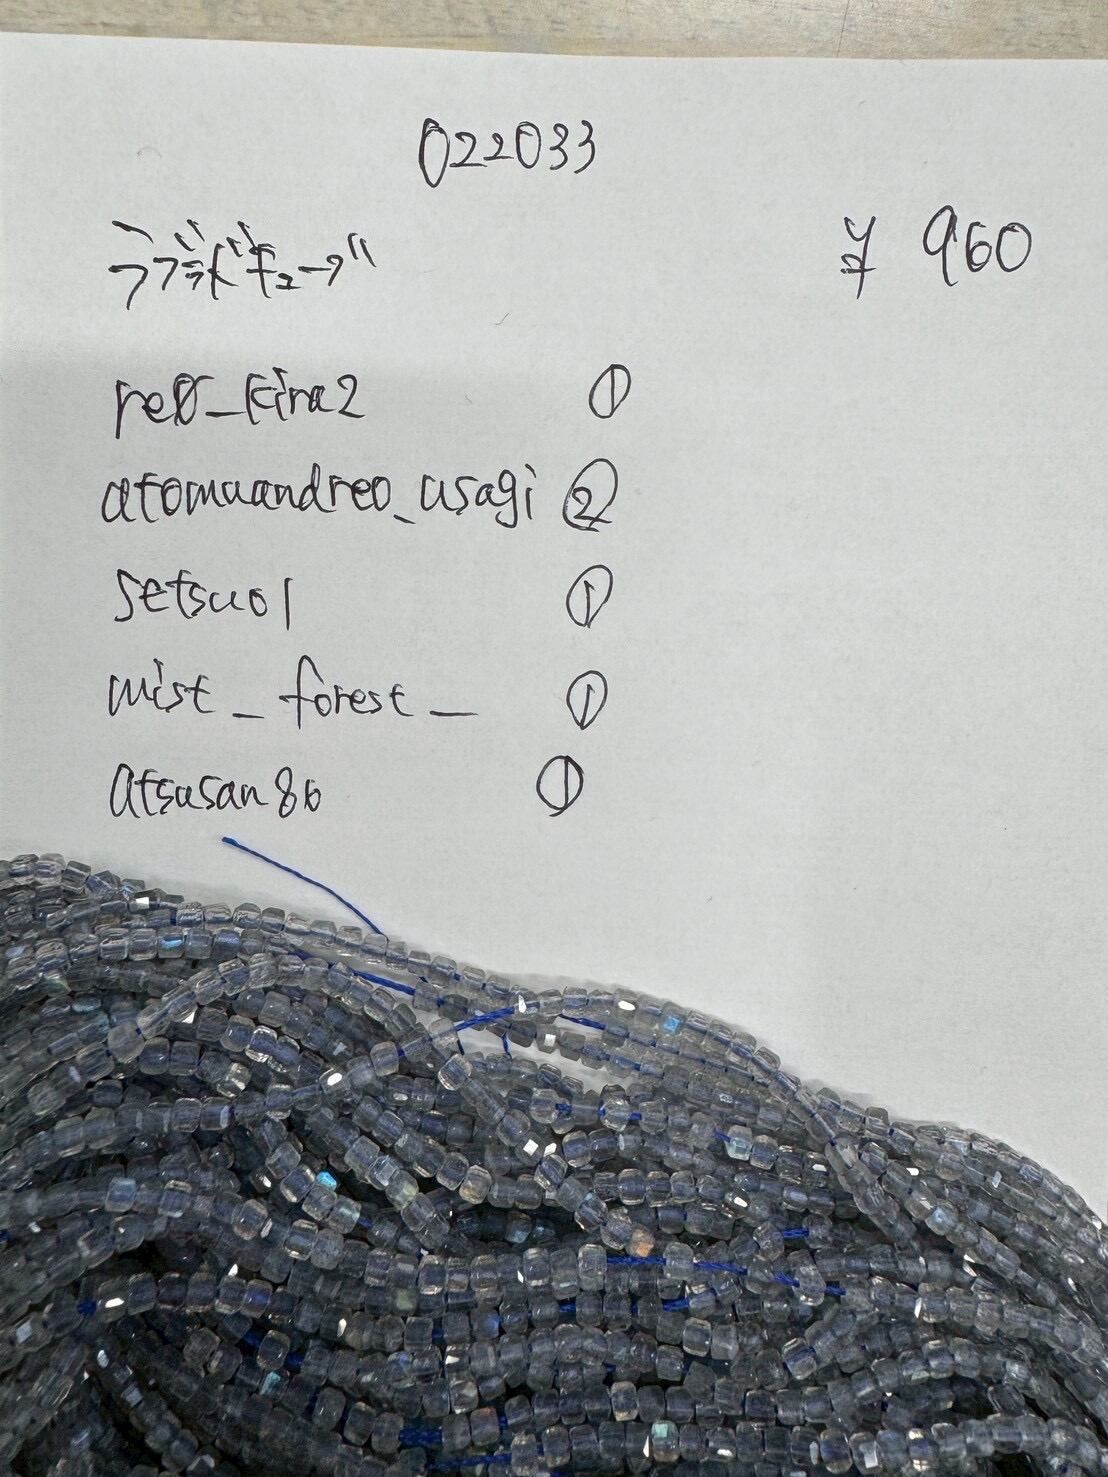 022033
ラブラドキューブ ¥ 960
re0_kira2 ①
atomuandreo_usagi ②
setsuo1 ①
mist_forest_ ①
atsusan86 ①